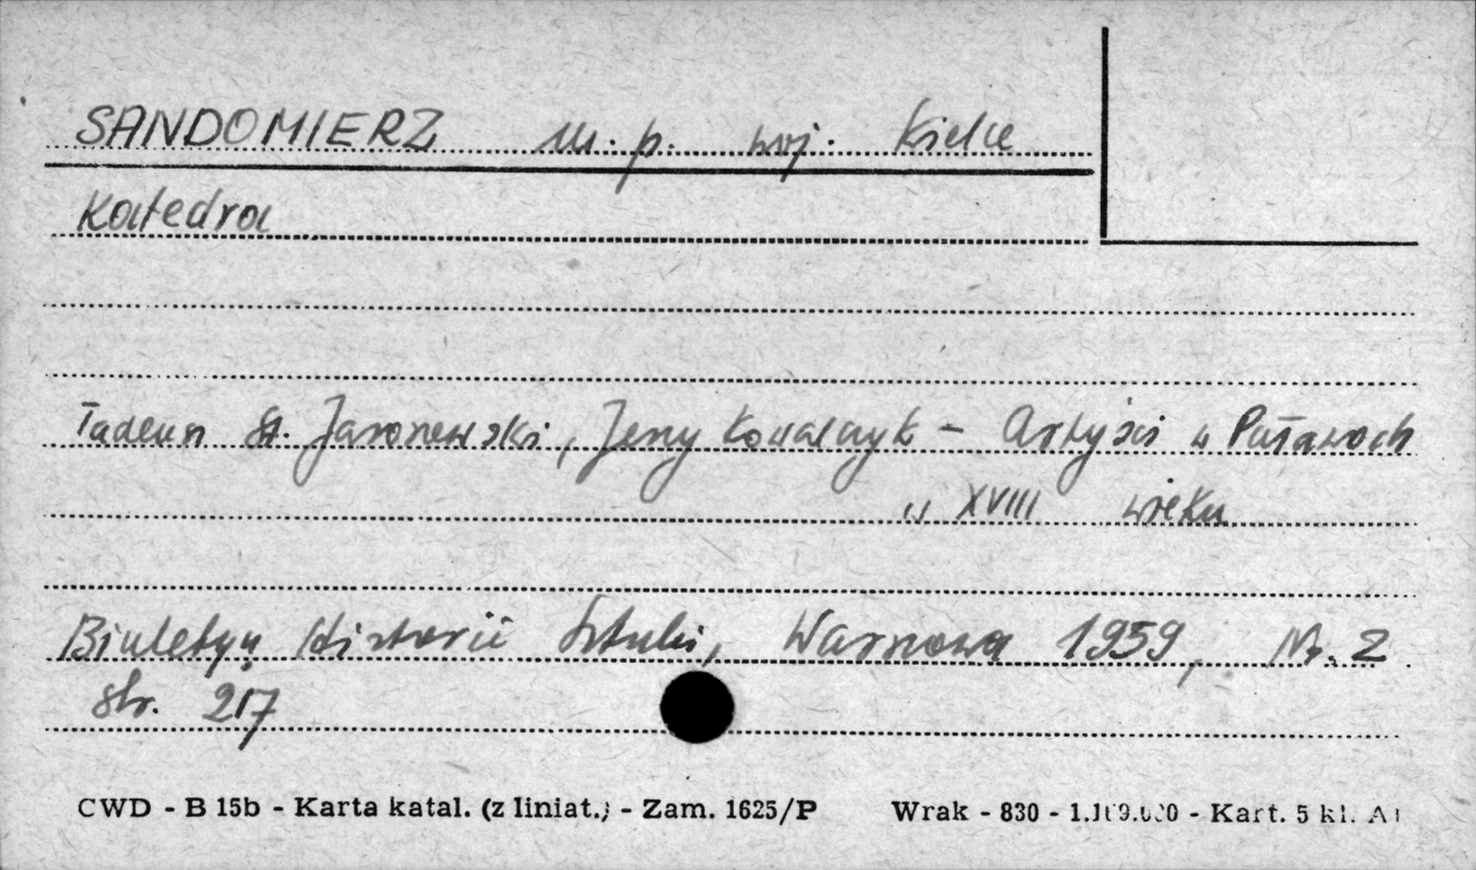 SANDOMIERZ m.p. woj. Kielce
Katedra
Tadeusz St. Jaroszewski, Jerzy Kowalczyk - Artyści w Puławach
w XVIII wieku
Biuletyn Historii Sztuki, Warszawa 1959, Nr. 2
str. 217
CWD - B 15b - Karta katal. (z liniat.) - Zam. 1625/P Wrak - 830 - Kart. 5 kl.